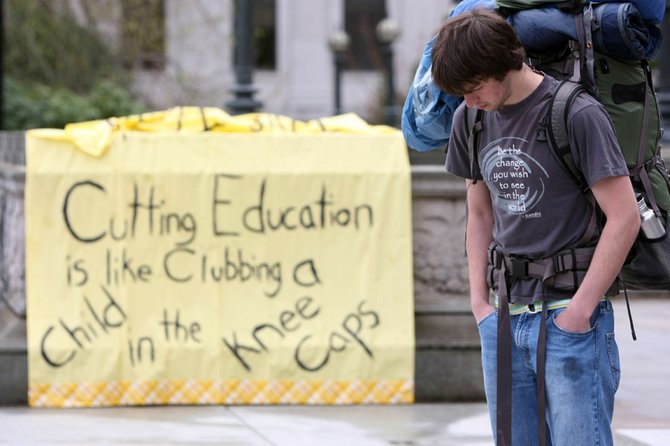 Cutting Education
is like Clubbing a
Child in the Knee Caps
Be the
change you
wish
to see
in the
world